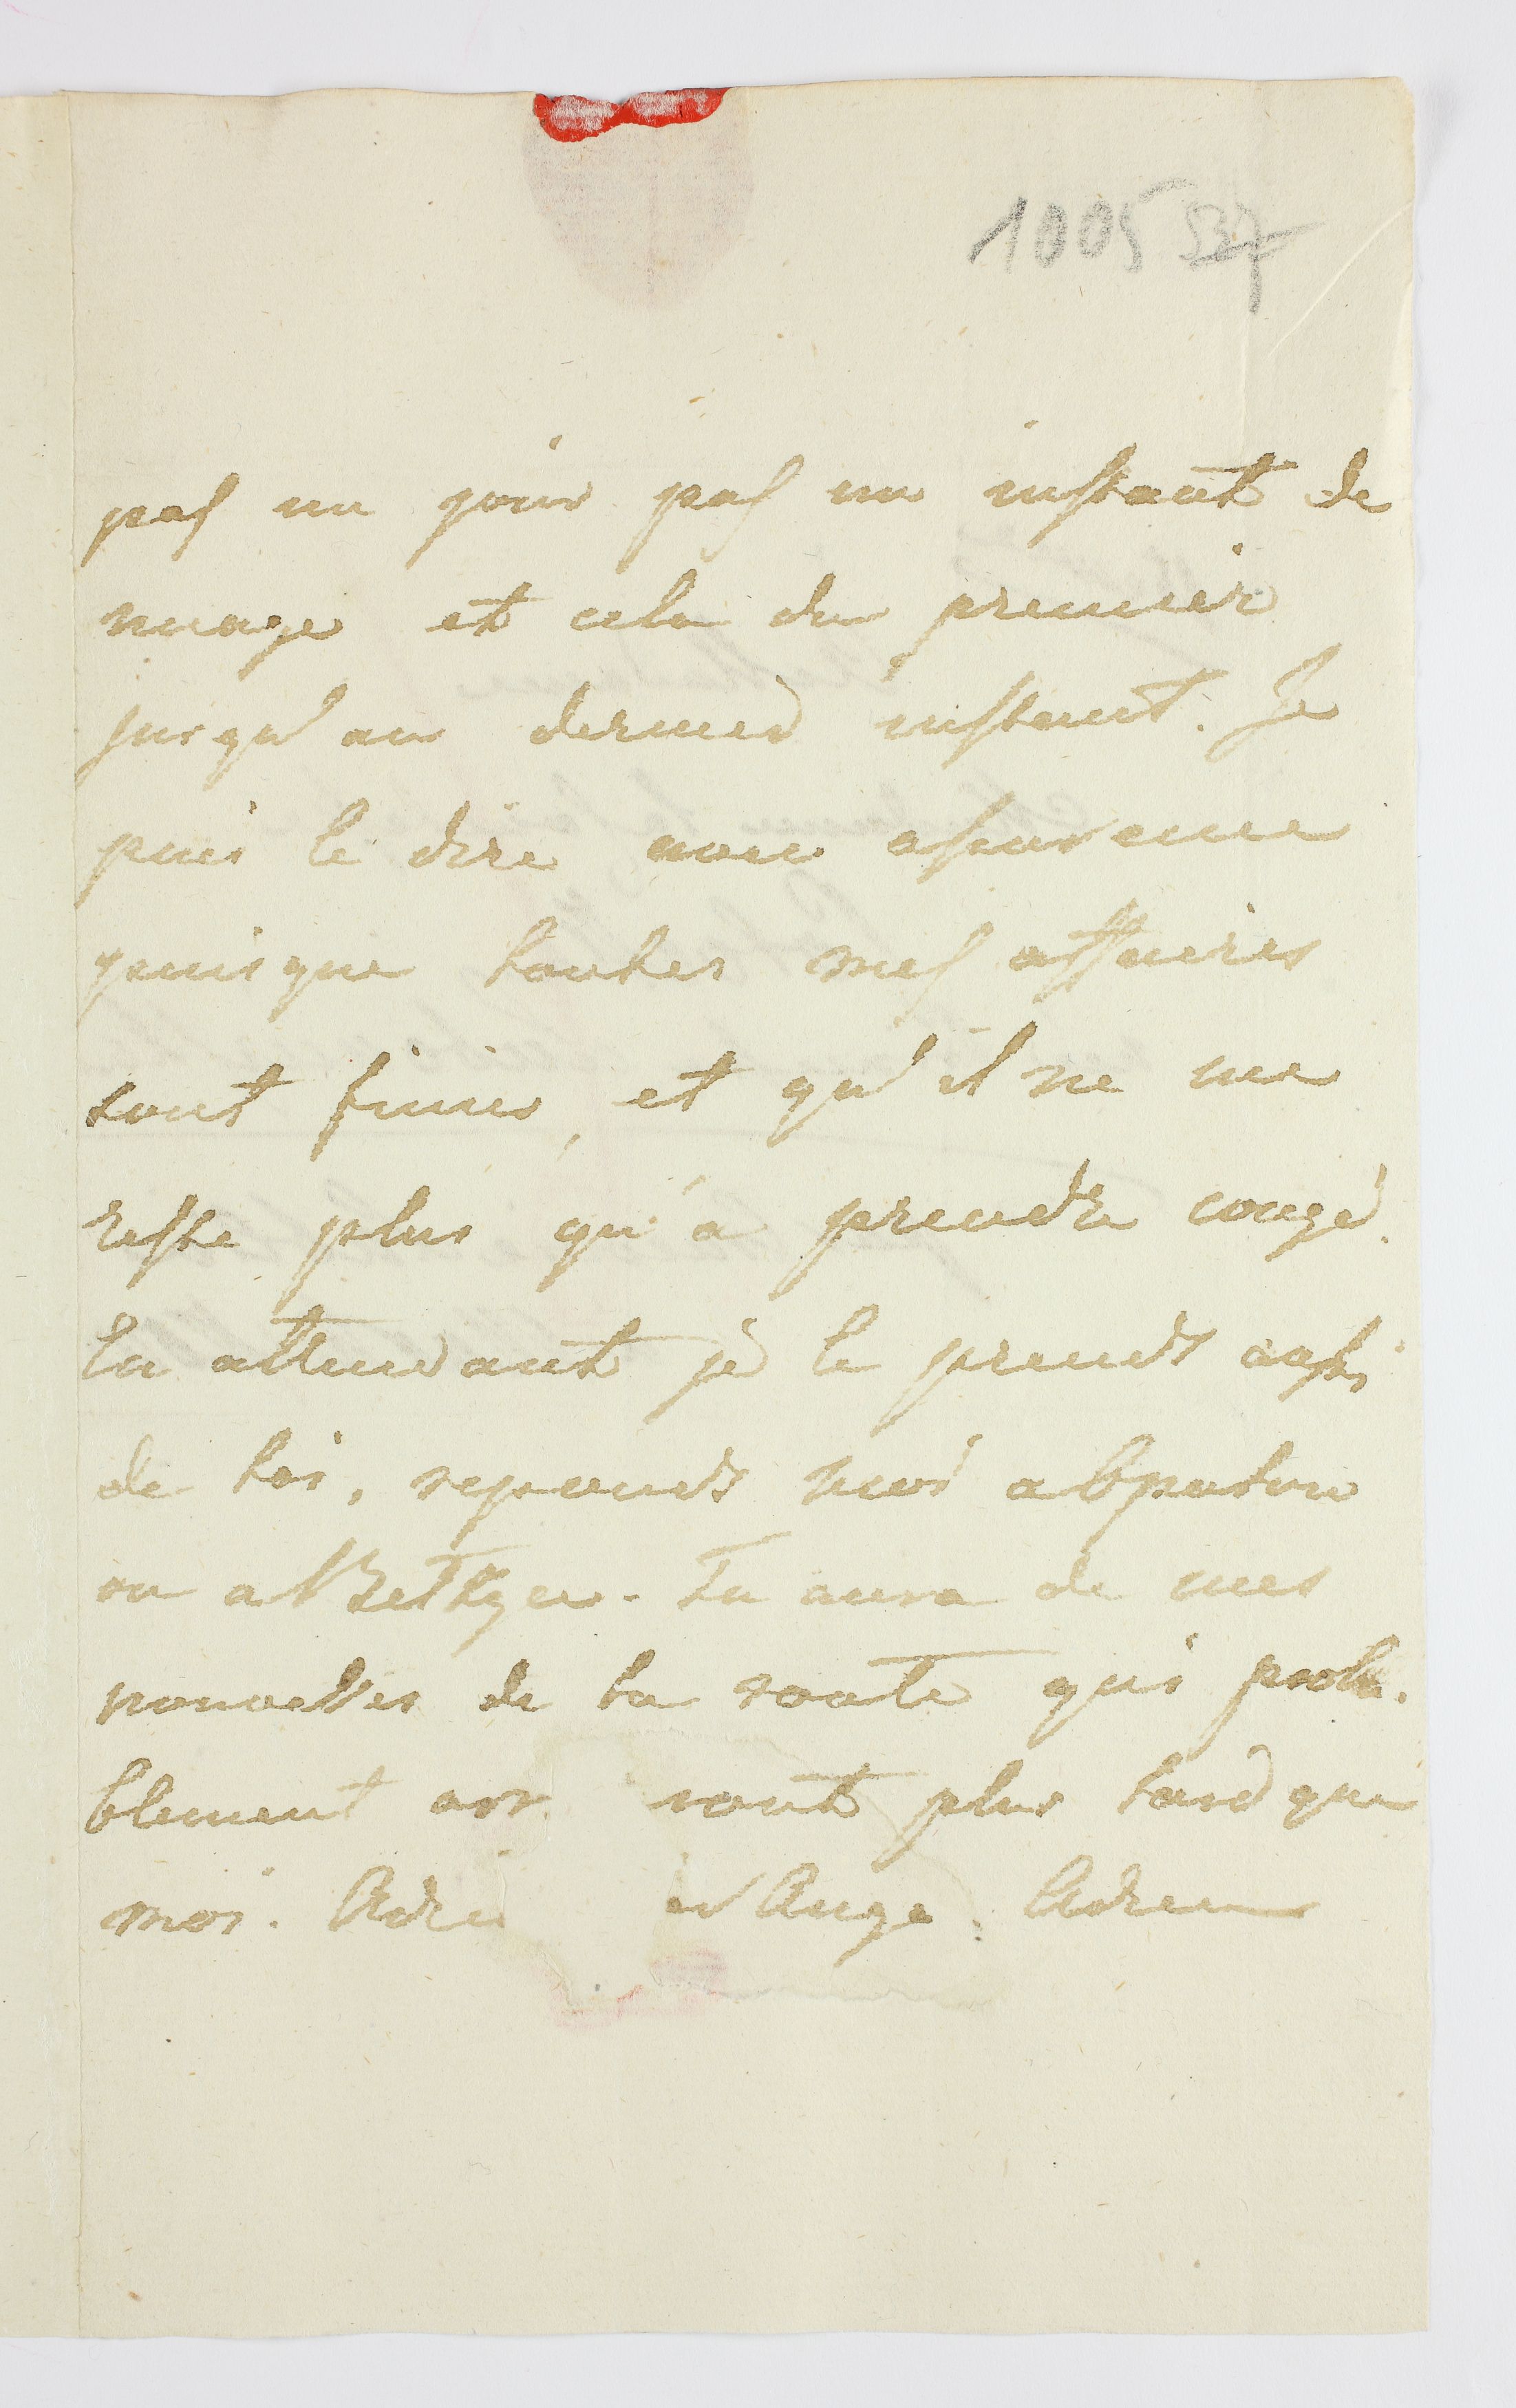 1005 537
pas un jour pas un instant de
nuage et cela du premier
jusqu'au dernier instant. Je
puis le dire avec assurence
puisque toutes mes affaires
sont finies, et qu'il ne me
reste plus qu'a prendre congé.
En attendant je le prends aussi
de toi, reponds moi a Opotow
ou a . Tu aura de mes
nouvelles de la route qui proba-
blement arr ront plus tard que
moi. Adie Ange. Adieu